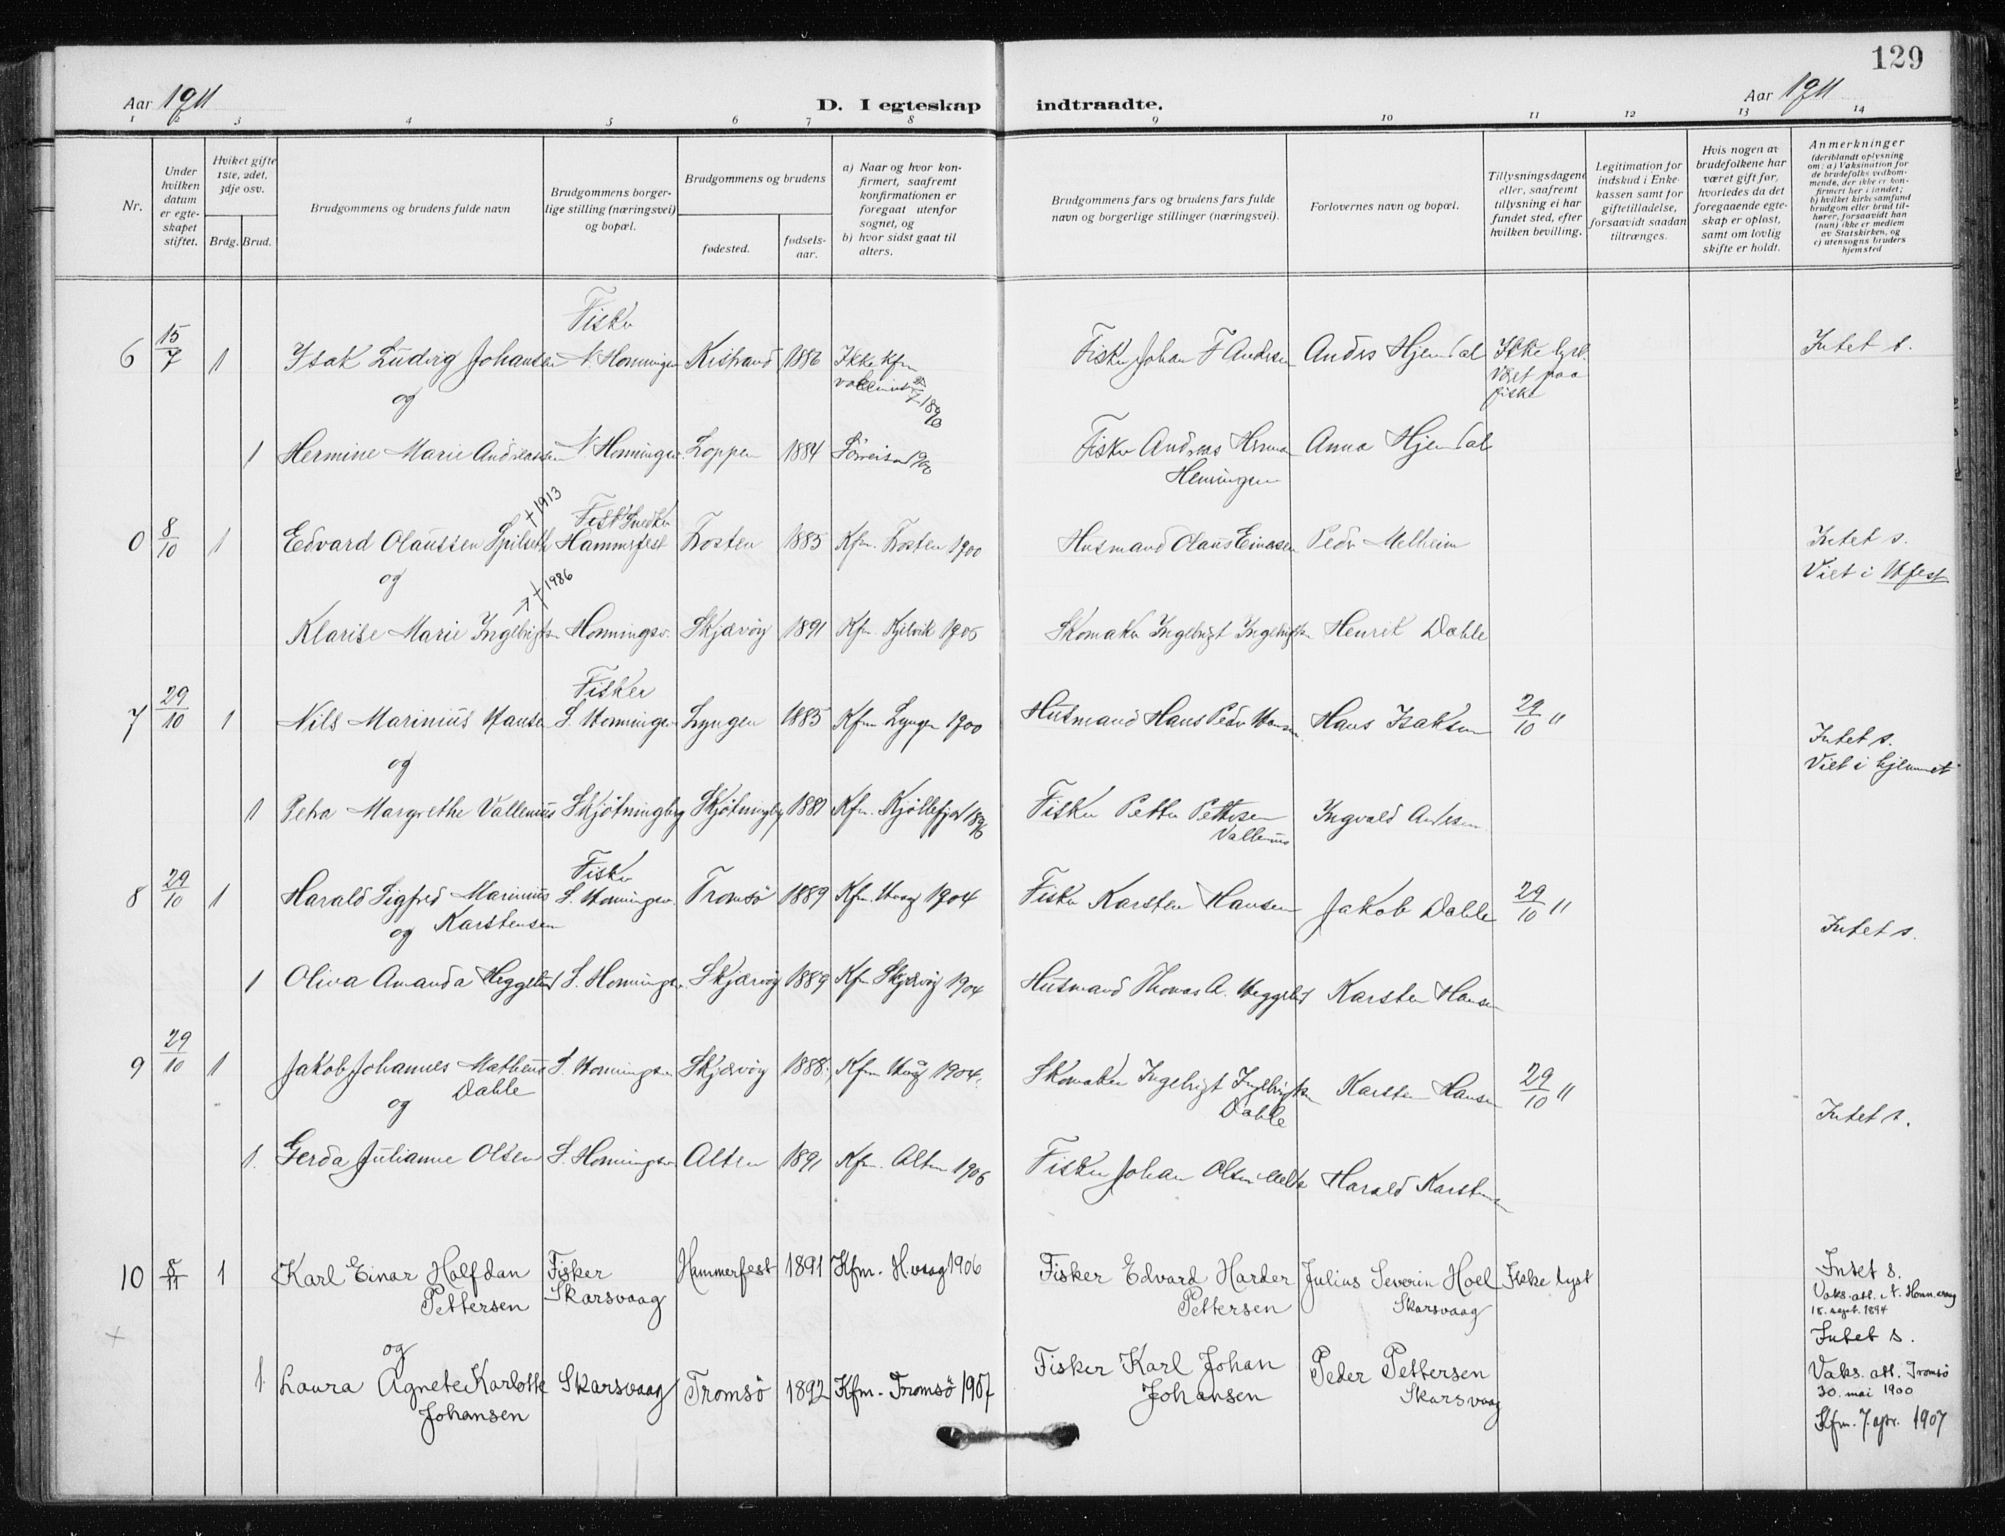 129
Aar 1911
D. I egteskap indtraadte.
Aar 1911
1 2 3 4 5 6 7 8 9 10 11 12 13 14
Nr.
Under hvilken datum er egteskapet stiftet.
Hvilket gifte 1ste, 2det, 3dje osv.
Brdg. Brud.
Brudgommens og brudens fulde navn
Brudgommens borgerlige stilling (næringsvei) og bopæl.
Brudgommens og brudens
fødested.
fødselsaar.
a) Naar og hvor konfirmert, saafremt konfirmationen er foregaat utenfor sognet, og
b) hvor sidst gaat til alters.
Brudgommens fars og brudens fars fulde navn og borgerlige stillinger (næringsvei).
Forlovernes navn og bopæl.
Tillysningsdagene eller, saafremt tillysning ei har fundet sted, efter hvilken bevilling.
Legitimation for indskud i Enkekassen samt for giftetilladelse, forsaavidt saadan tiltrænges.
Hvis nogen av brudefolkene har været gift før, hvorledes da det foregaaende egteskap er opløst, samt om lovlig skifte er holdt.
Anmerkninger (deriblandt oplysning om: a) Vaksination for de brudefolks vedkommende, der ikke er konfirmert her i landet; b) hvilket kirkesamfund brudgom eller brud tilhører, forsaavidt han (hun) ikke er medlem av Statskirken, og c) utensogns bruders hjemsted
Fisker
6 15/7 1 Isak Ludvig Johansen N. Honningsv. Kistrand 1886 Ikke kfm Fisker Johan F Andersen Anders Hjemdal Ikke lyst. Intet s.
Været paa
fiske
og
1 Hermine Marie Andreassen N Honningsv. Loppen 1884 Sörreisa 1900 Fisker Andreas Herman Anna Hjemdal
Henningsen
† 1913
Fisk Snedker
0 8/10 1 Edvard Olaussen Spilseth Hammerfest Frosten 1885 Kfm. Frosten 1900 Husmand Olaus Einarsen Peder Melheim Intet s.
og Viet i Hfest
† 1986
Klarise Marie Ingebrigtsen Honningsv. Skjærvöy 1891 Kfm. Kjelvik 1905 Skomaker Ingebrigt Ingebrigtsen Henrik Dahle
Fisker
7 29/10 1 Nils Marinius Hansen S. Honningsv. Lyngen 1885 Kfm Lyngen 1900 Husmand Hans Peder Hansen Hans Isaksen 29/10 " Intet s.
og Viet i hjemmet
1 Petra Margrethe Vallenius Skjötningberg Skjötningberg 1881 Kfm. Kjöllefjord 1896 Fisker Petter Pettersen Ingvald Andersen
Vallenius
Fisker
8 29/10 1 Harald Sigfred Marinius S. Honningsv. Tromsö 1889 Kfm. Hvaag 1904 Fisker Karsten Hansen Jakob Dahle 29/10 " Intet s.
og Karstensen
1 Oliva Amanda Heggelund S. Honningsv. Skjærvöy 1889 Kfm Skjærvöy 1904 Husmand Thomas A. Heggelund Karsten Hansen
9 29/10 1 Jakob Johannes Matheus S. Honningsv Skjærvöy 1888. Kfm Hvaag 1904. Skomaker Ingebrigt Ingebrigtsen Karsten Hansen 29/10 " Intet s.
Dahle Dahle
og
1. Gerda Julianne Olsen S. Honningsv. Alten 1891 Kfm. Alten 1906 Fisker Johan Olsen Harald Karstensen
10 5/11 1 Karl Einar Halfdan Fisker Hammerfest 1891 Kfm. H.vaag 1906 Fisker Edvard Harder Julius Severin Hoel Ikke lyst Intet s.
Pettersen Skarsvaag Pettersen Skarsvaag Vaks. att. N. Honn.vaag
18. augst. 1894
og Intet s.
1 Laura Agnete Karlotte Skarsvaag Tromsö 1892 Kfm. Tromsö 1907 Fisker Karl Johan Peder Pettersen Vaks. att. Tromsö
Johansen Johansen Skarsvaag 30. mai 1900
Kfm. 7. apr. 1907